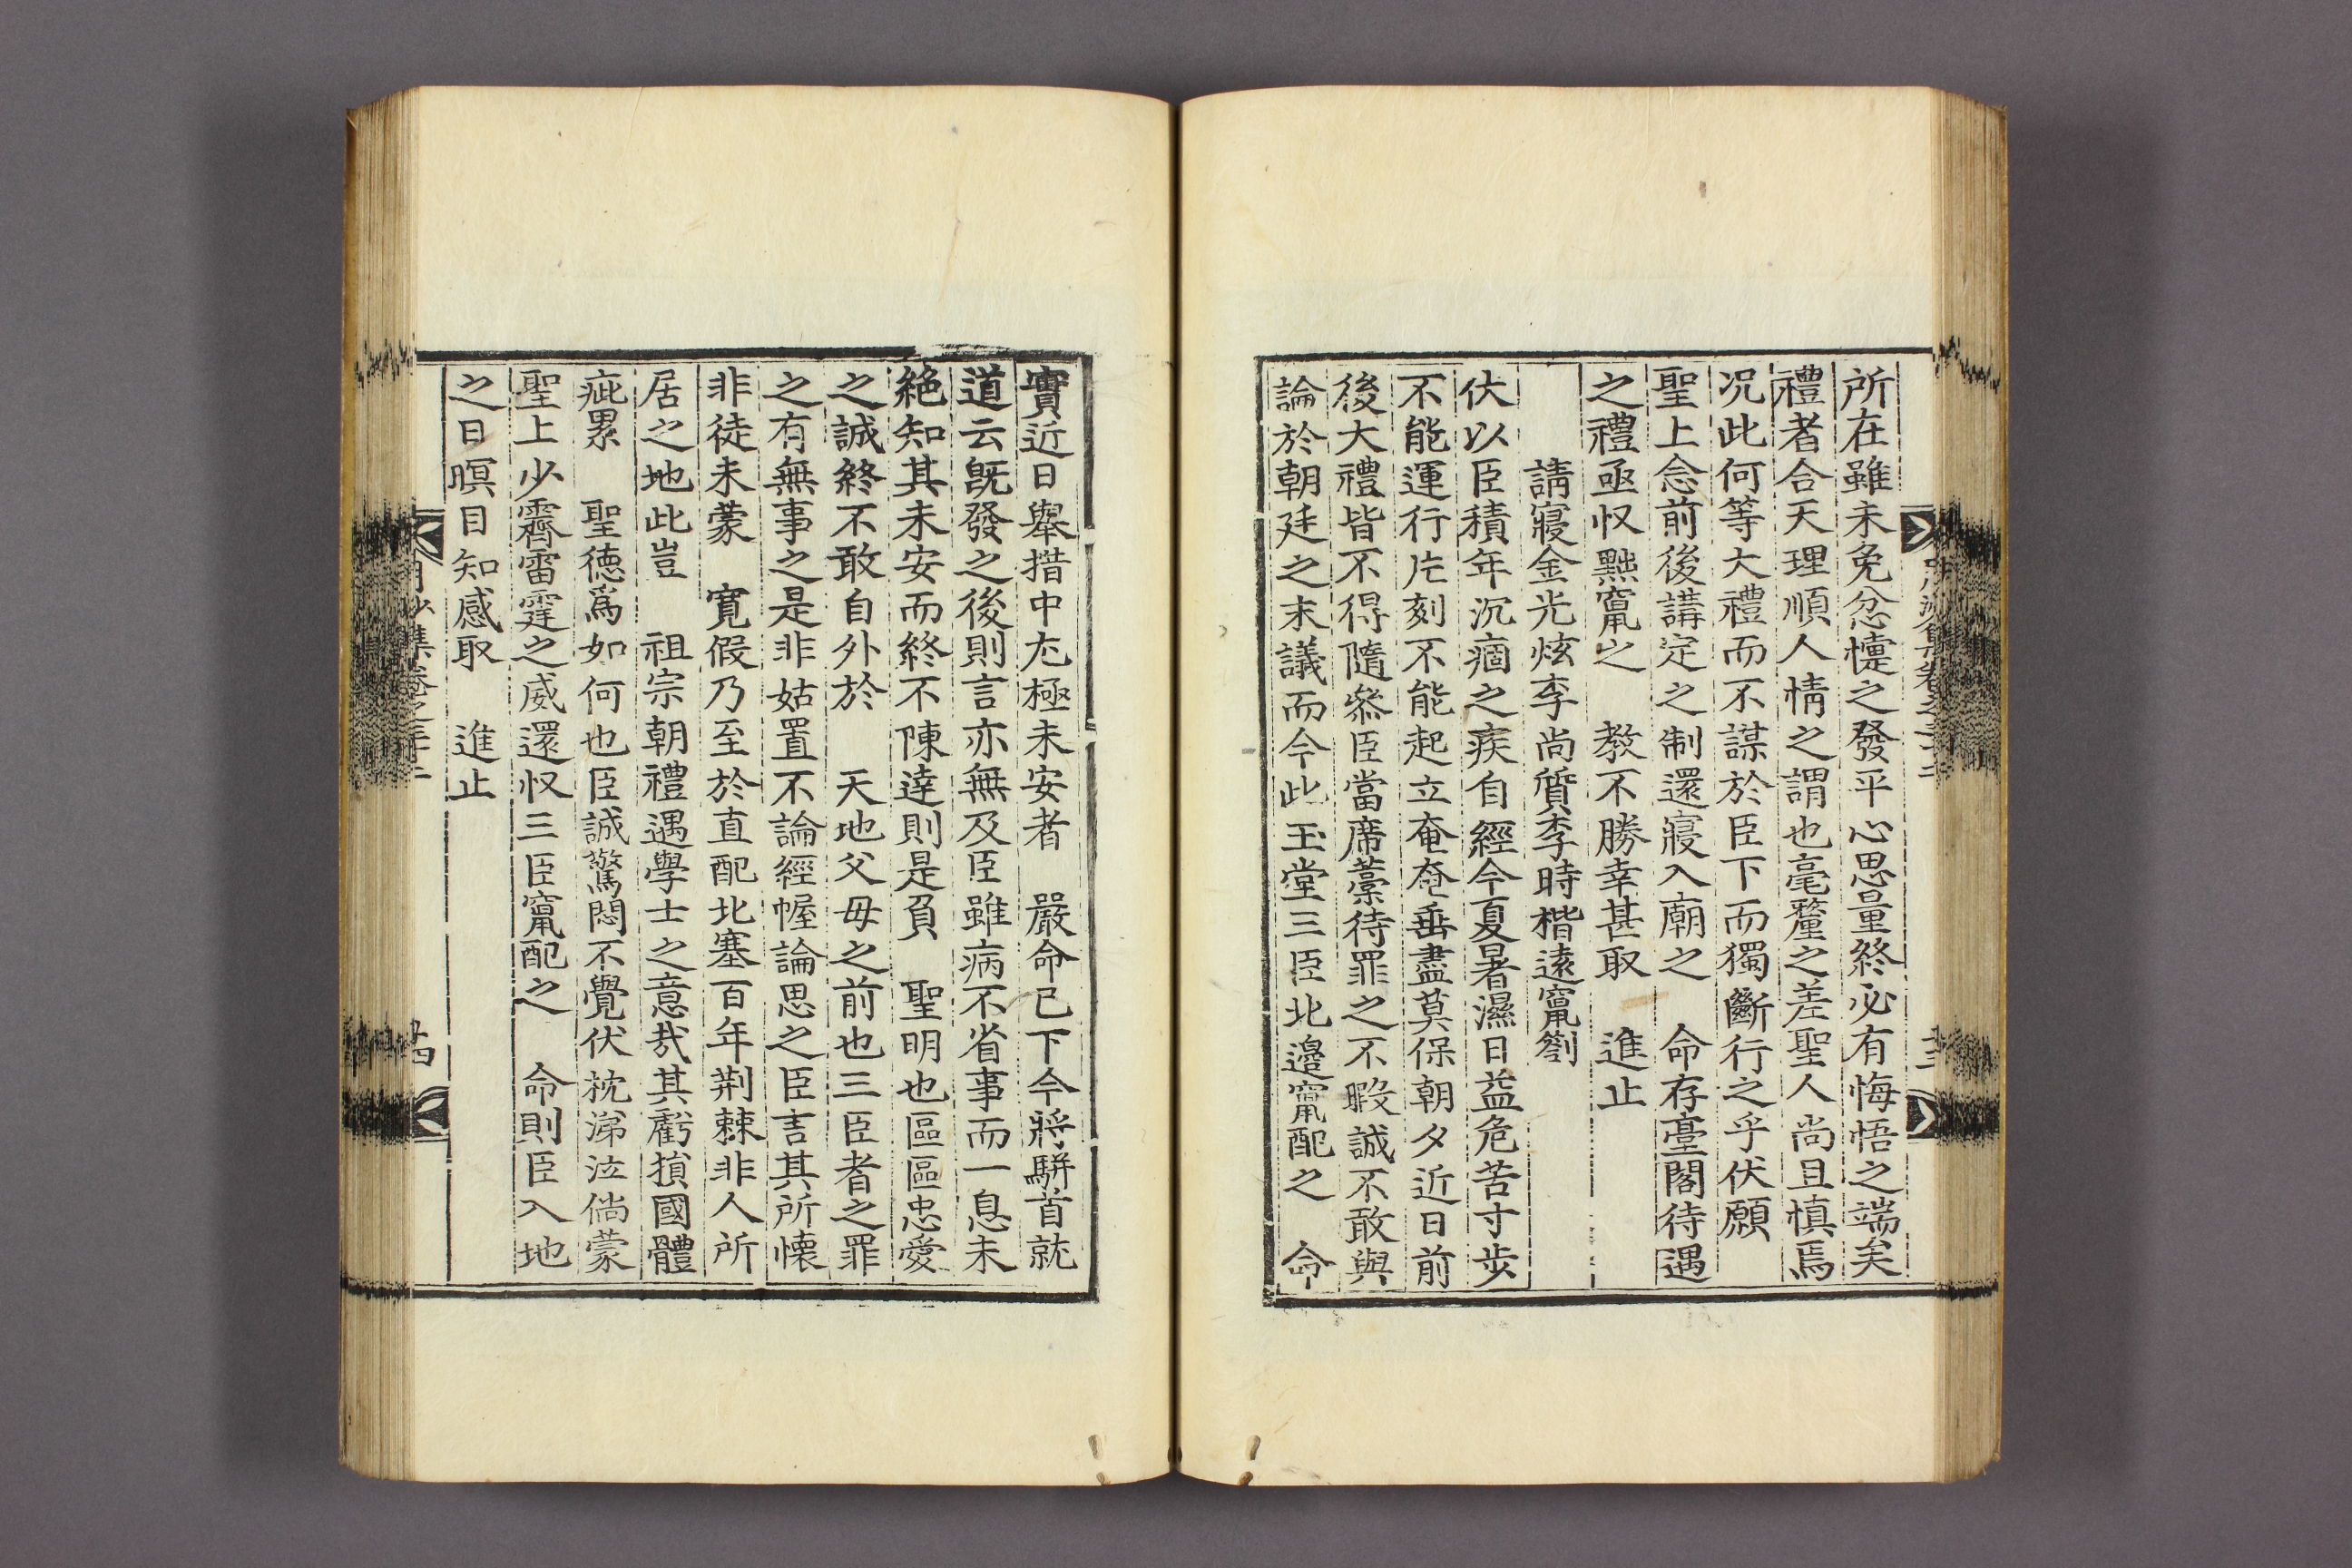 所在雖未免忿懥之發平心思量終必有悔悟之端矣
禮者合天理順人情之謂也毫釐之差聖人尚且慎焉
况此何等大禮而不謀於臣下而獨斷行之乎伏願
聖上念前後講定之制還寢入廟之　命存臺閣待遇
之禮亟収黜竄之　教不勝幸甚取　進止
請寢金光炫李尚質李時楷遠竄劄
伏以臣積年沉痼之疾自經今夏暑濕日益危苦寸步
不能運行片刻不能起立奄奄垂盡莫保朝夕近日前
後大禮皆不得隨叅臣當席藁待罪之不暇誠不敢與
論於朝廷之末議而今此玉堂三臣北邊竄配之　命
實近日舉措中尤極未安者　嚴命已下今將騈首就
道云旣發之後則言亦無及臣雖病不省事而一息未
絶知其未安而終不陳達則是負　聖明也區區忠愛
之誠終不敢自外於　天地父母之前也三臣者之罪
之有無事之是非姑置不論經幄論思之臣言其所懷
非徒未蒙　寬假乃至於直配北塞百年荆棘非人所
居之地此豈　祖宗朝禮遇學士之意㦲其虧損國體
疵累　聖德爲如何也臣誠驚悶不覺伏枕涕泣倘蒙
聖上少霽雷霆之威還収三臣竄配之　命則臣入地
之日暝目知感取　進止
集卷之二十二
廿四